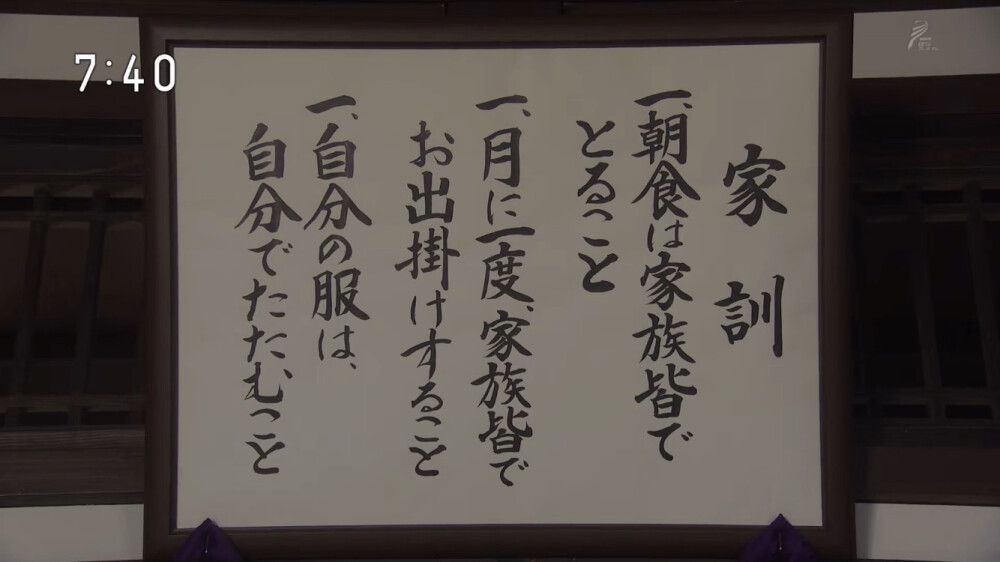 7:40
家訓
一、朝食は家族皆で
とること
一、月に一度、家族皆で
お出掛けすること
一、自分の服は、
自分でたたむこと